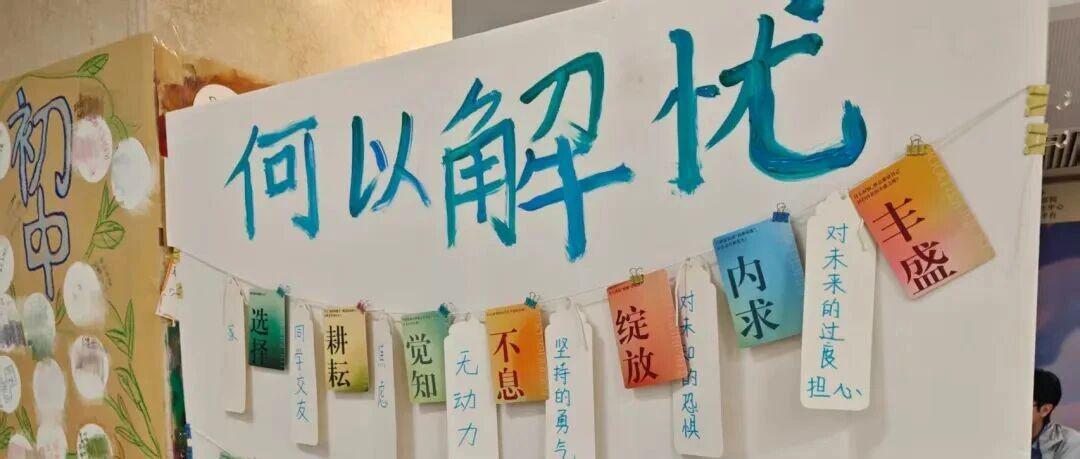 初中
何以解忧
选择
同学交友
耕耘
焦虑
觉知
无动力
不息
坚持的勇气
绽放
对未知的恐惧
内求
对未来的过度
担心
丰盛